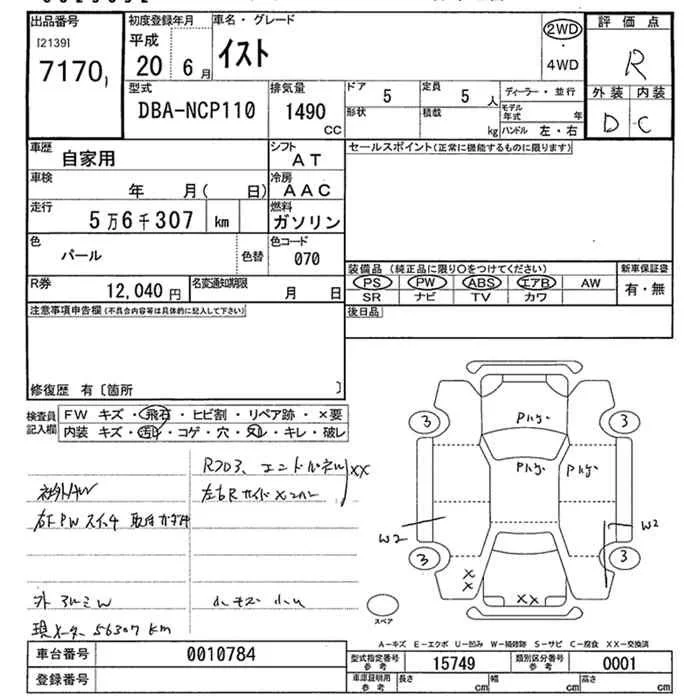 出品番号
[2139]
7170
初度登録年月
平成
20 6月
車名・グレード
イスト
2WD
・
4WD
評価点
R
外装 内装
D C
型式
DBA-NCP110
排気量
1490
CC
ドア
5
定員
5 人
形状
積載
kg
ディーラー・並行
モデル年式 年
ハンドル 左・右
車歴
自家用
シフト
AT
セールスポイント(正常に機能するものに限ります)
車検
年 月( 日)
冷房
AAC
走行
5万6千307 km
燃料
ガソリン
色
パール
色替
色コード
070
装備品 (純正品に限り〇をつけてください)
新車保証書
PS PW ABS エアB AW
有・無
SR ナビ TV カワ
R券
12,040 円
名変通知期限
月 日
注意事項申告欄(不具合内容等は具体的に記入して下さい)
後日品
修復歴 有〔箇所 〕
検査員記入欄
FW キズ・飛石・ヒビ割・リペア跡・×要
内装 キズ・汚れ・コゲ・穴・スレ・キレ・破レ
XX
右F PW スイッチ
現メーター 56307 km
3 3 3 3
W2
W2
X
X
XX
スペア
A-キズ E-エクボ U-凹み W-補修跡 S-サビ C-腐食 XX-交換済
車台番号
0010784
型式指定番号参考
15749
類別区分番号参考
0001
登録番号
車庫証明用参考
長さ cm
幅 cm
高さ cm